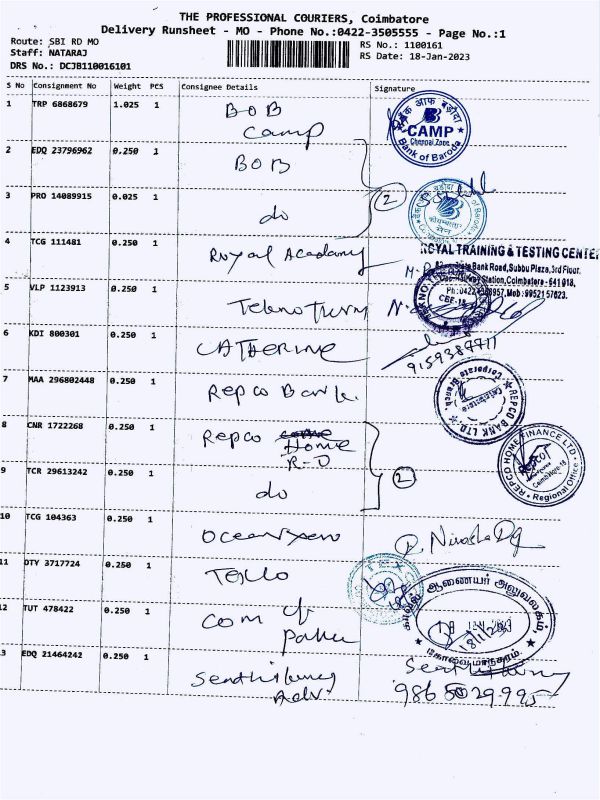 THE PROFESSIONAL COURIERS, Coimbatore
Delivery Runsheet - MO - Phone No.:0422-3505555 - Page No.:1
Route: SBI RD MO
Staff: NATARAJ
DRS No.: DCJB110016101
RS No.: 1100161
RS Date: 18-Jan-2023
S No Consignment No Weight PCS Consignee Details Signature
1 TRP 6868679 1.025 1 BOB Camp
CAMP
Chennai Zone
Bank of Baroda
2 EDQ 23796962 0.250 1 BOB
3 PRO 14089915 0.025 1 do
2
4 TCG 111481 0.250 1 Royal Academy
ROYAL TRAINING & TESTING CENTER
Bank Road, Subbu Plaza, 3rd Floor.
Station, Coimbatore - 641 018,
Mob: 99521 57623.
5 VLP 1123913 0.250 1
CBE-18
6 KDI 800301 0.250 1 CATHERINE
9159387711
7 MAA 296802448 0.250 1 Repco Bank.
REPCO BANK LTD.
Corporate Branch,
Coimbatore
8 CNR 1722268 0.250 1 Repco Home
R-O
REPCO HOME FINANCE LTD
Coimbatore-18
Regional Office
9 TCR 29613242 0.250 1 do
2
10 TCG 104363 0.250 1
11 DTY 3717724 0.250 1
12 TUT 478422 0.250 1 Com of
Police
ஆணையர் அலுவலகம்,
கோவை மாநகரம்.
13 EDQ 21464242 0.250 1
Adv.
9865029995